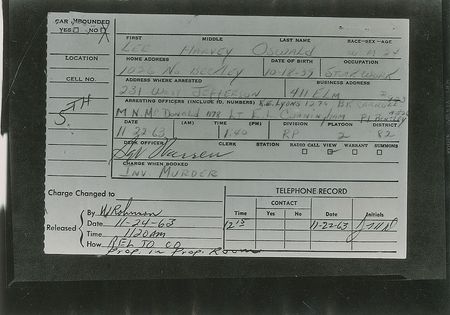 CAR IMPOUNDED
YES NO X
FIRST MIDDLE LAST NAME RACE-SEX-AGE
LEE HARVEY OSWALD W M 24
LOCATION
HOME ADDRESS DATE OF BIRTH OCCUPATION
1026 NO BECKLEY 10-18-39
CELL NO.
ADDRESS WHERE ARRESTED BUSINESS ADDRESS
231 WEST JEFFERSON 411 ELM
ARRESTING OFFICERS (INCLUDE ID. NUMBERS) K.E. LYONS 1276
M N. McDONALD 1178 LT E L CUNNINGHAM
5TH
DATE (AM) TIME (PM) DIVISION PLATOON DISTRICT
11 22 63 1:40 RP 2 82
DESK OFFICER CLERK STATION RADIO CALL VIEW WARRANT SUMMONS
Sgt Warren
CHARGE WHEN BOOKED
INV MURDER
Charge Changed to
TELEPHONE RECORD
CONTACT
Time Yes No Date Initials
12 15 11-22-63
Released
By
Date 11-24-63
Time 1120 AM
How REL TO CO
Prop. in Prop. Room